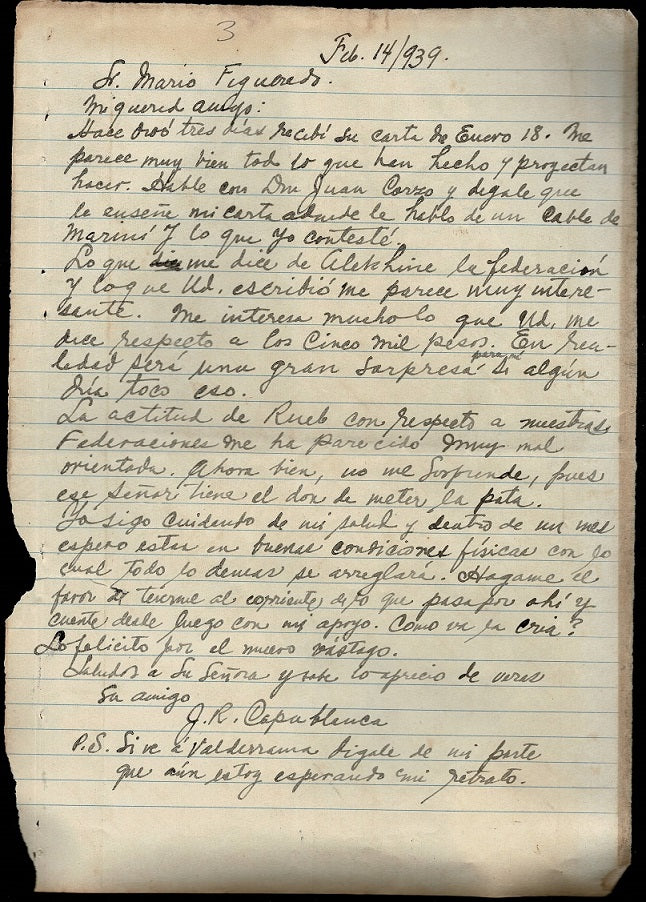 3
Feb. 14/939.
Sr. Mario Figueredo.
Mi querid amigo:
Hace dos ó tres días recibí su carta de Enero 18. Me
parece muy bien todo lo que han hecho y proyectan
hacer. Hable con Don Juan Corzo y digale que
le enseñe mi carta adonde le hablo de un Cable de
Mariné y lo que yo contesté.
Lo que me dice de Alekhine la federación
y lo que Ud. escribió me parece muy intere-
sante. Me interesa mucho lo que Ud. me
dice respecto a los Cinco mil pesos. En rea-
lidad será una gran sorpresa para mí si algún
día toco eso.
La actitud de Rueb con respecto a nuestras
Federaciones me ha parecido muy mal
orientada. Ahora bien, no me sorprende, pues
ese Señor tiene el don de meter la pata.
Yo sigo cuidando de mi salud y dentro de un mes
espero estar en buenas condiciones físicas con lo
cual todo lo demas se arreglará. Hagame el
favor de tenerme al corriente de lo que pasa por ahí y
cuente desde luego con mi apoyo. Como va la cria?
Lo felicito por el nuevo vástago.
Saludos a Su Señora y sabe lo aprecio de veras
Su amigo
J. R. Capablanca
P.S. Si ve á Valderrama digale de mi parte
que aún estoy esperando mi retrato.